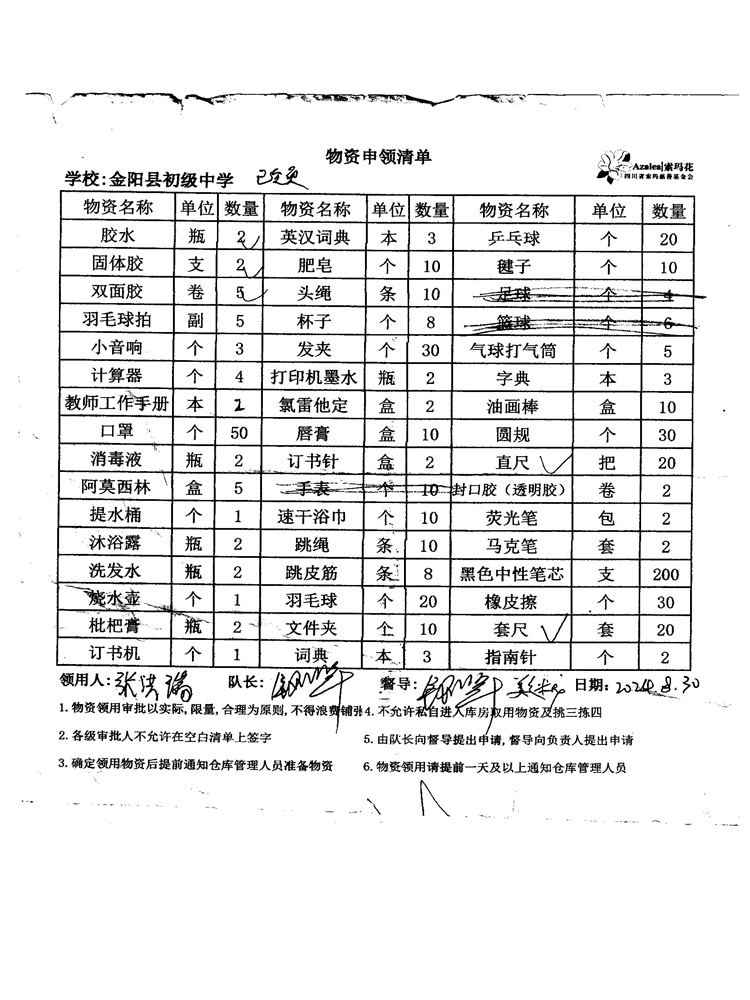 物资申领清单
Azalea|索玛花
四川省索玛慈善基金会
学校:金阳县初级中学
物资名称 单位 数量 物资名称 单位 数量 物资名称 单位 数量
胶水 瓶 2 英汉词典 本 3 乒乓球 个 20
固体胶 支 2 肥皂 个 10 毽子 个 10
双面胶 卷 5 头绳 条 10 足球 个 4
羽毛球拍 副 5 杯子 个 8 篮球 个 6
小音响 个 3 发夹 个 30 气球打气筒 个 5
计算器 个 4 打印机墨水 瓶 2 字典 本 3
教师工作手册 本 2 氯雷他定 盒 2 油画棒 盒 10
口罩 个 50 唇膏 盒 10 圆规 个 30
消毒液 瓶 2 订书针 盒 2 直尺 把 20
阿莫西林 盒 5 手表 个 10 封口胶（透明胶） 卷 2
提水桶 个 1 速干浴巾 个 10 荧光笔 包 2
沐浴露 瓶 2 跳绳 条 10 马克笔 套 2
洗发水 瓶 2 跳皮筋 条 8 黑色中性笔芯 支 200
烧水壶 个 1 羽毛球 个 20 橡皮擦 个 30
枇杷膏 瓶 2 文件夹 个 10 套尺 套 20
订书机 个 1 词典 本 3 指南针 个 2
领用人: 队长: 督导: 日期: 2024.8.30
1. 物资领用审批以实际, 限量, 合理为原则, 不得浪费铺张 4. 不允许私自进入库房取用物资及挑三拣四
2. 各级审批人不允许在空白清单上签字 5. 由队长向督导提出申请, 督导向负责人提出申请
3. 确定领用物资后提前通知仓库管理人员准备物资 6. 物资领用请提前一天及以上通知仓库管理人员